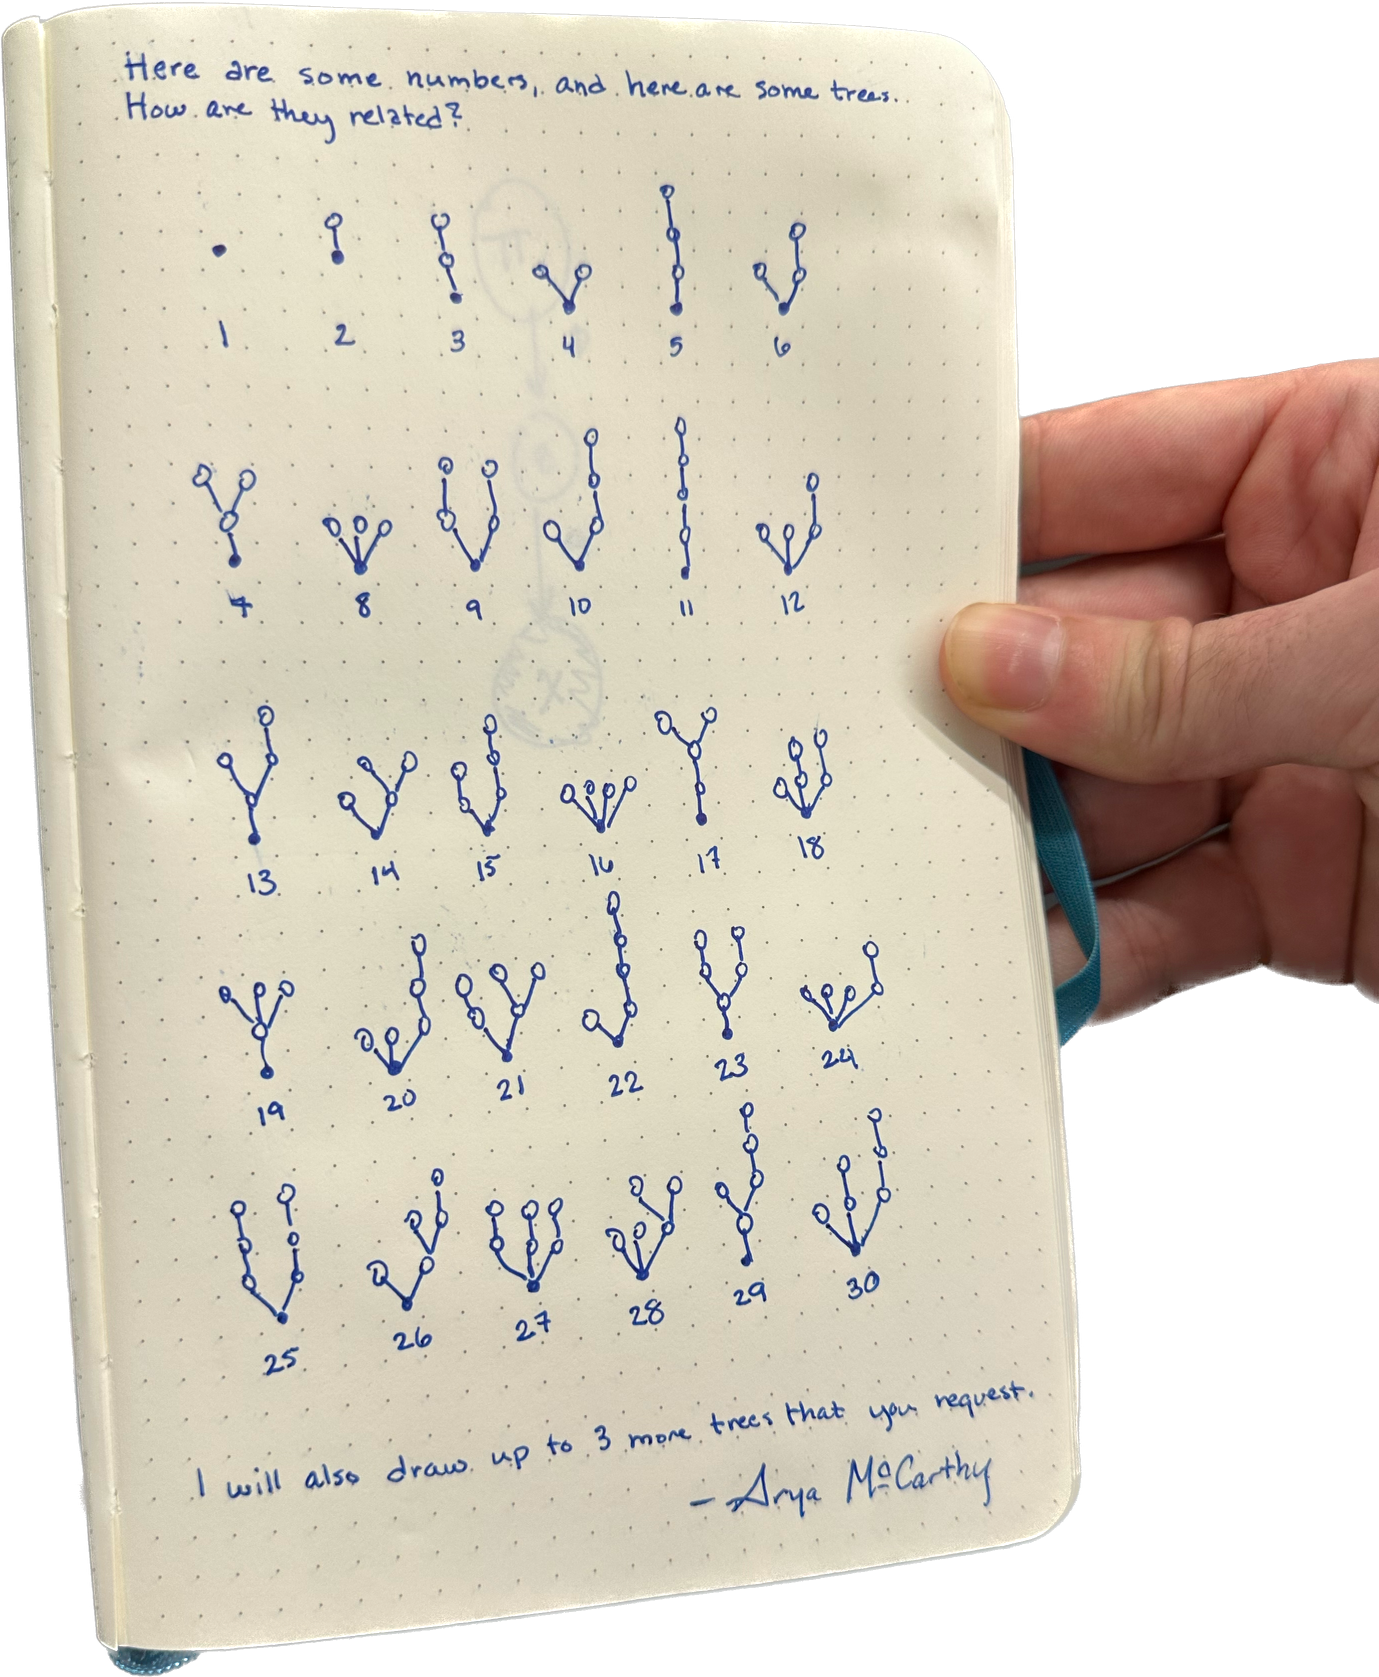 Here are some numbers, and here are some trees.
How are they related?
1 2 3 4 5 6
7 8 9 10 11 12
13 14 15 16 17 18
19 20 21 22 23 24
25 26 27 28 29 30
I will also draw up to 3 more trees that you request.
- Arya McCarthy